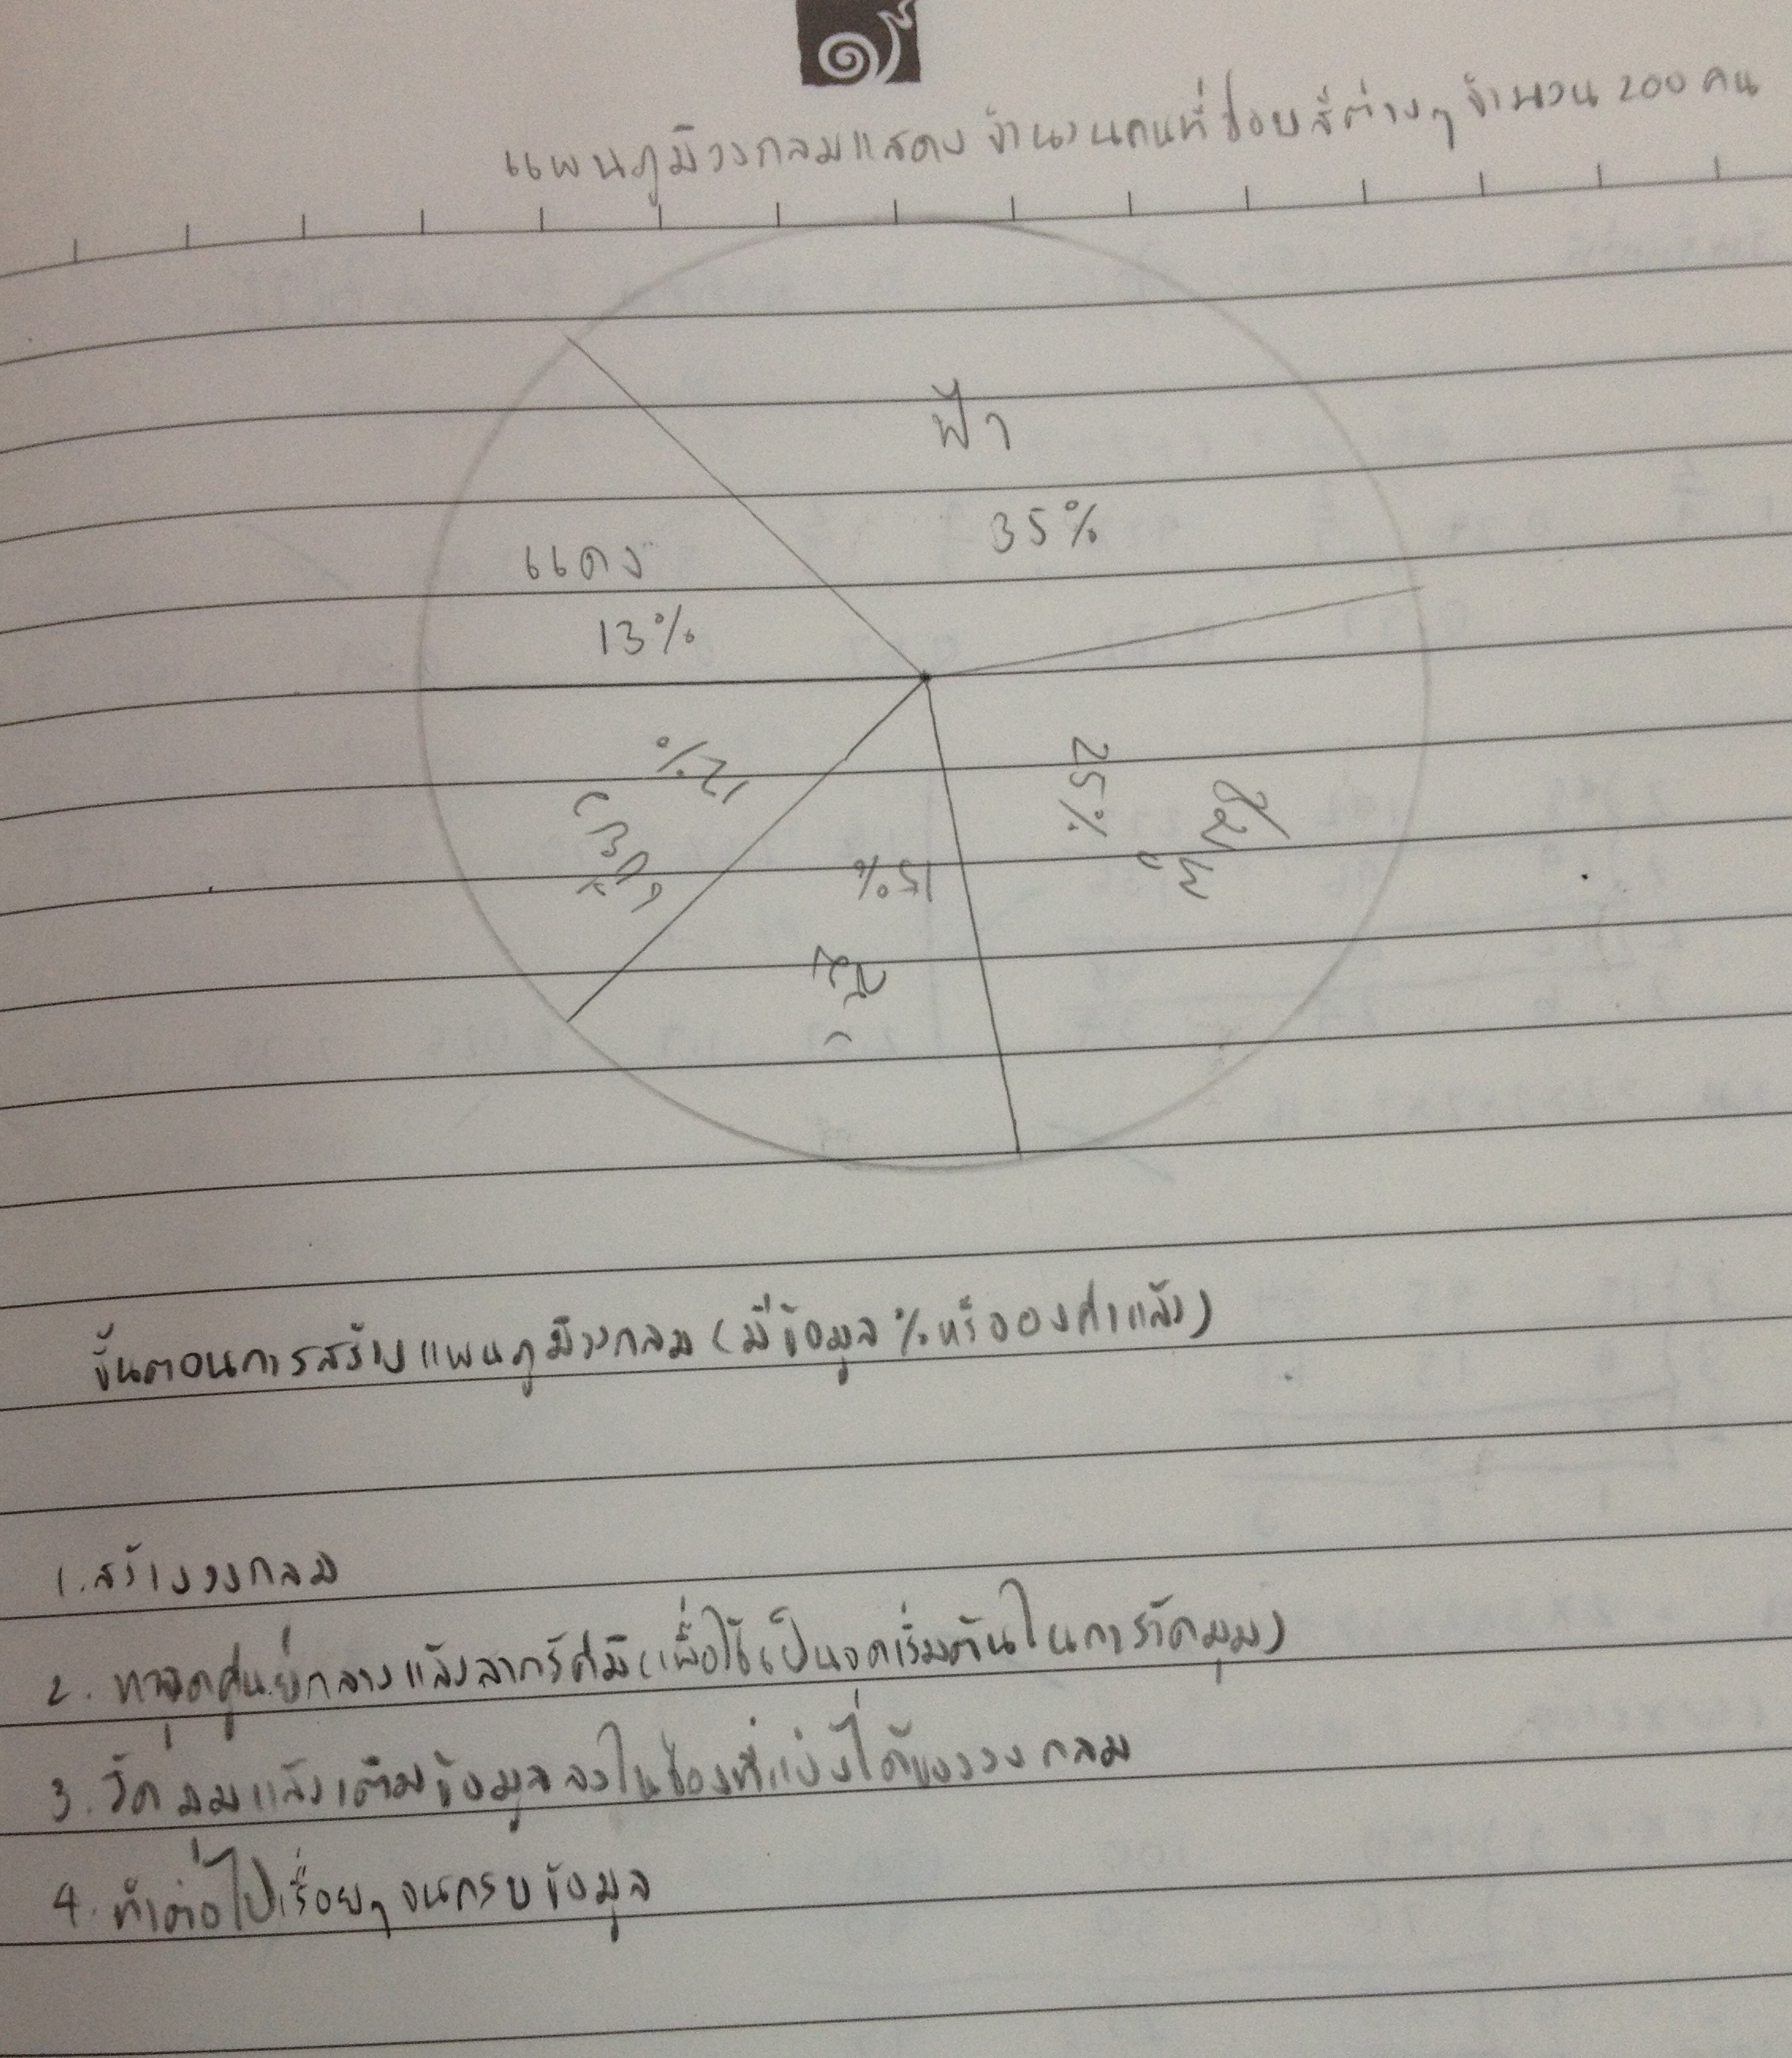 แผนภูมิวงกลมแสดงจำนวนคนที่ชอบสีต่างๆ จำนวน 200 คน
ฟ้า
35%
แดง
13%
25%
ชมพู
12%
เขียว
15%
ขั้นตอนการสร้างแผนภูมิวงกลม (มีข้อมูล % หรือองศาแล้ว)
1. สร้างวงกลม
2. หาจุดศูนย์กลางแล้วลากรัศมี (เพื่อใช้เป็นจุดเริ่มต้นในการวัดมุม)
3. วัดมุมแล้วเติมข้อมูลลงในช่องที่แบ่งได้ของวงกลม
4. ทำต่อไปเรื่อยๆ จนครบข้อมูล